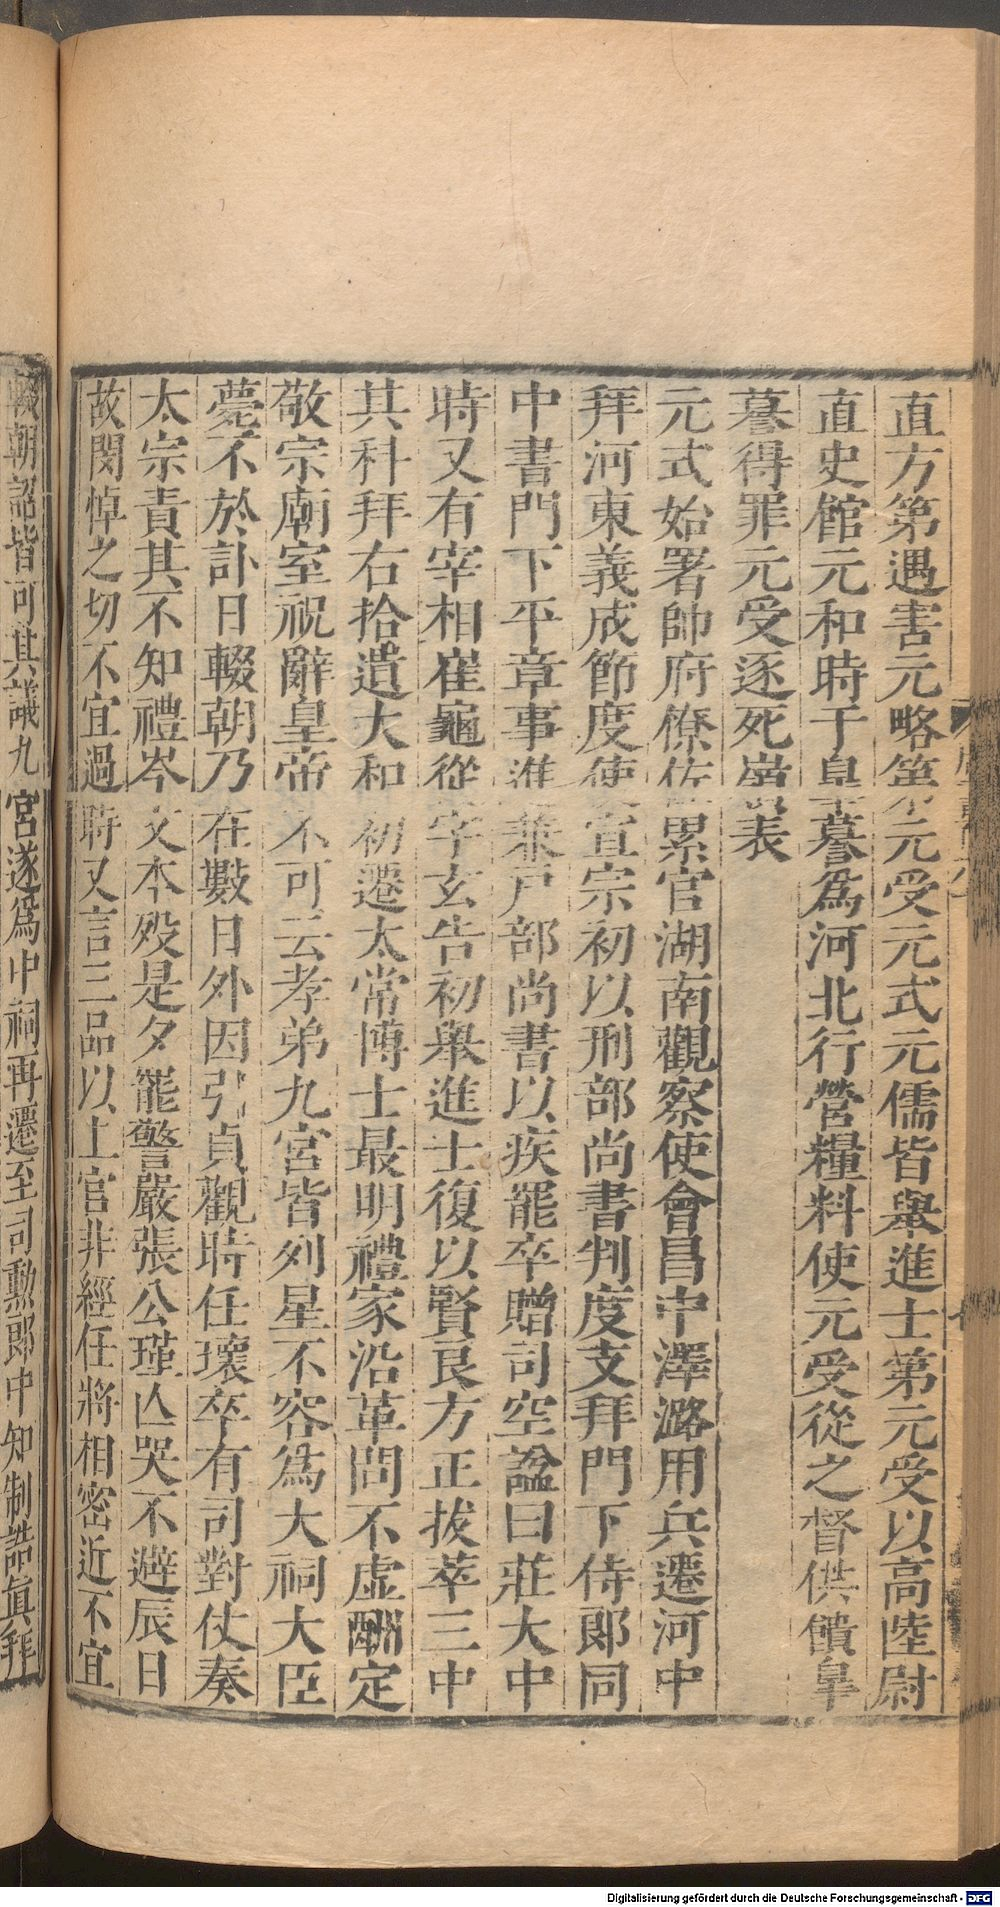 直方第遇害元略第元受元式元儒皆舉進士第元受以高陸尉
直史館元和時于皐謩爲河北行營糧料使元受從之督供饋皐
謩得罪元受逐死嶺表
元式始署帥府僚佐累官湖南觀察使會昌中澤潞用兵遷河中
拜河東義成節度使宣宗初以刑部尚書判度支拜門下侍郎同
中書門下平章事進兼戸部尚書以疾罷卒贈司空諡曰莊大中
時又有宰相崔龜從字玄告初舉進士復以賢良方正拔萃三中
其科拜右拾遺大和初遷太常博士最明禮家沿革問不虛酬定
敬宗廟室祝辭皇帝不可云孝弟九宮皆列星不容爲大祠大臣
薨不於訃日輟朝乃在數日外因引貞觀時任瓌卒有司對仗奏
太宗責其不知禮岑文本歿是夕罷警嚴張公瑾亾哭不避辰日
故閔悼之切不宜過時又言三品以上官非經任將相密近不宜
輟朝詔皆可其議九宮遂爲中祠再遷至司勲郎中知制誥眞拜
Digitalisierung gefördert durch die Deutsche Forschungsgemeinschaft - DFG